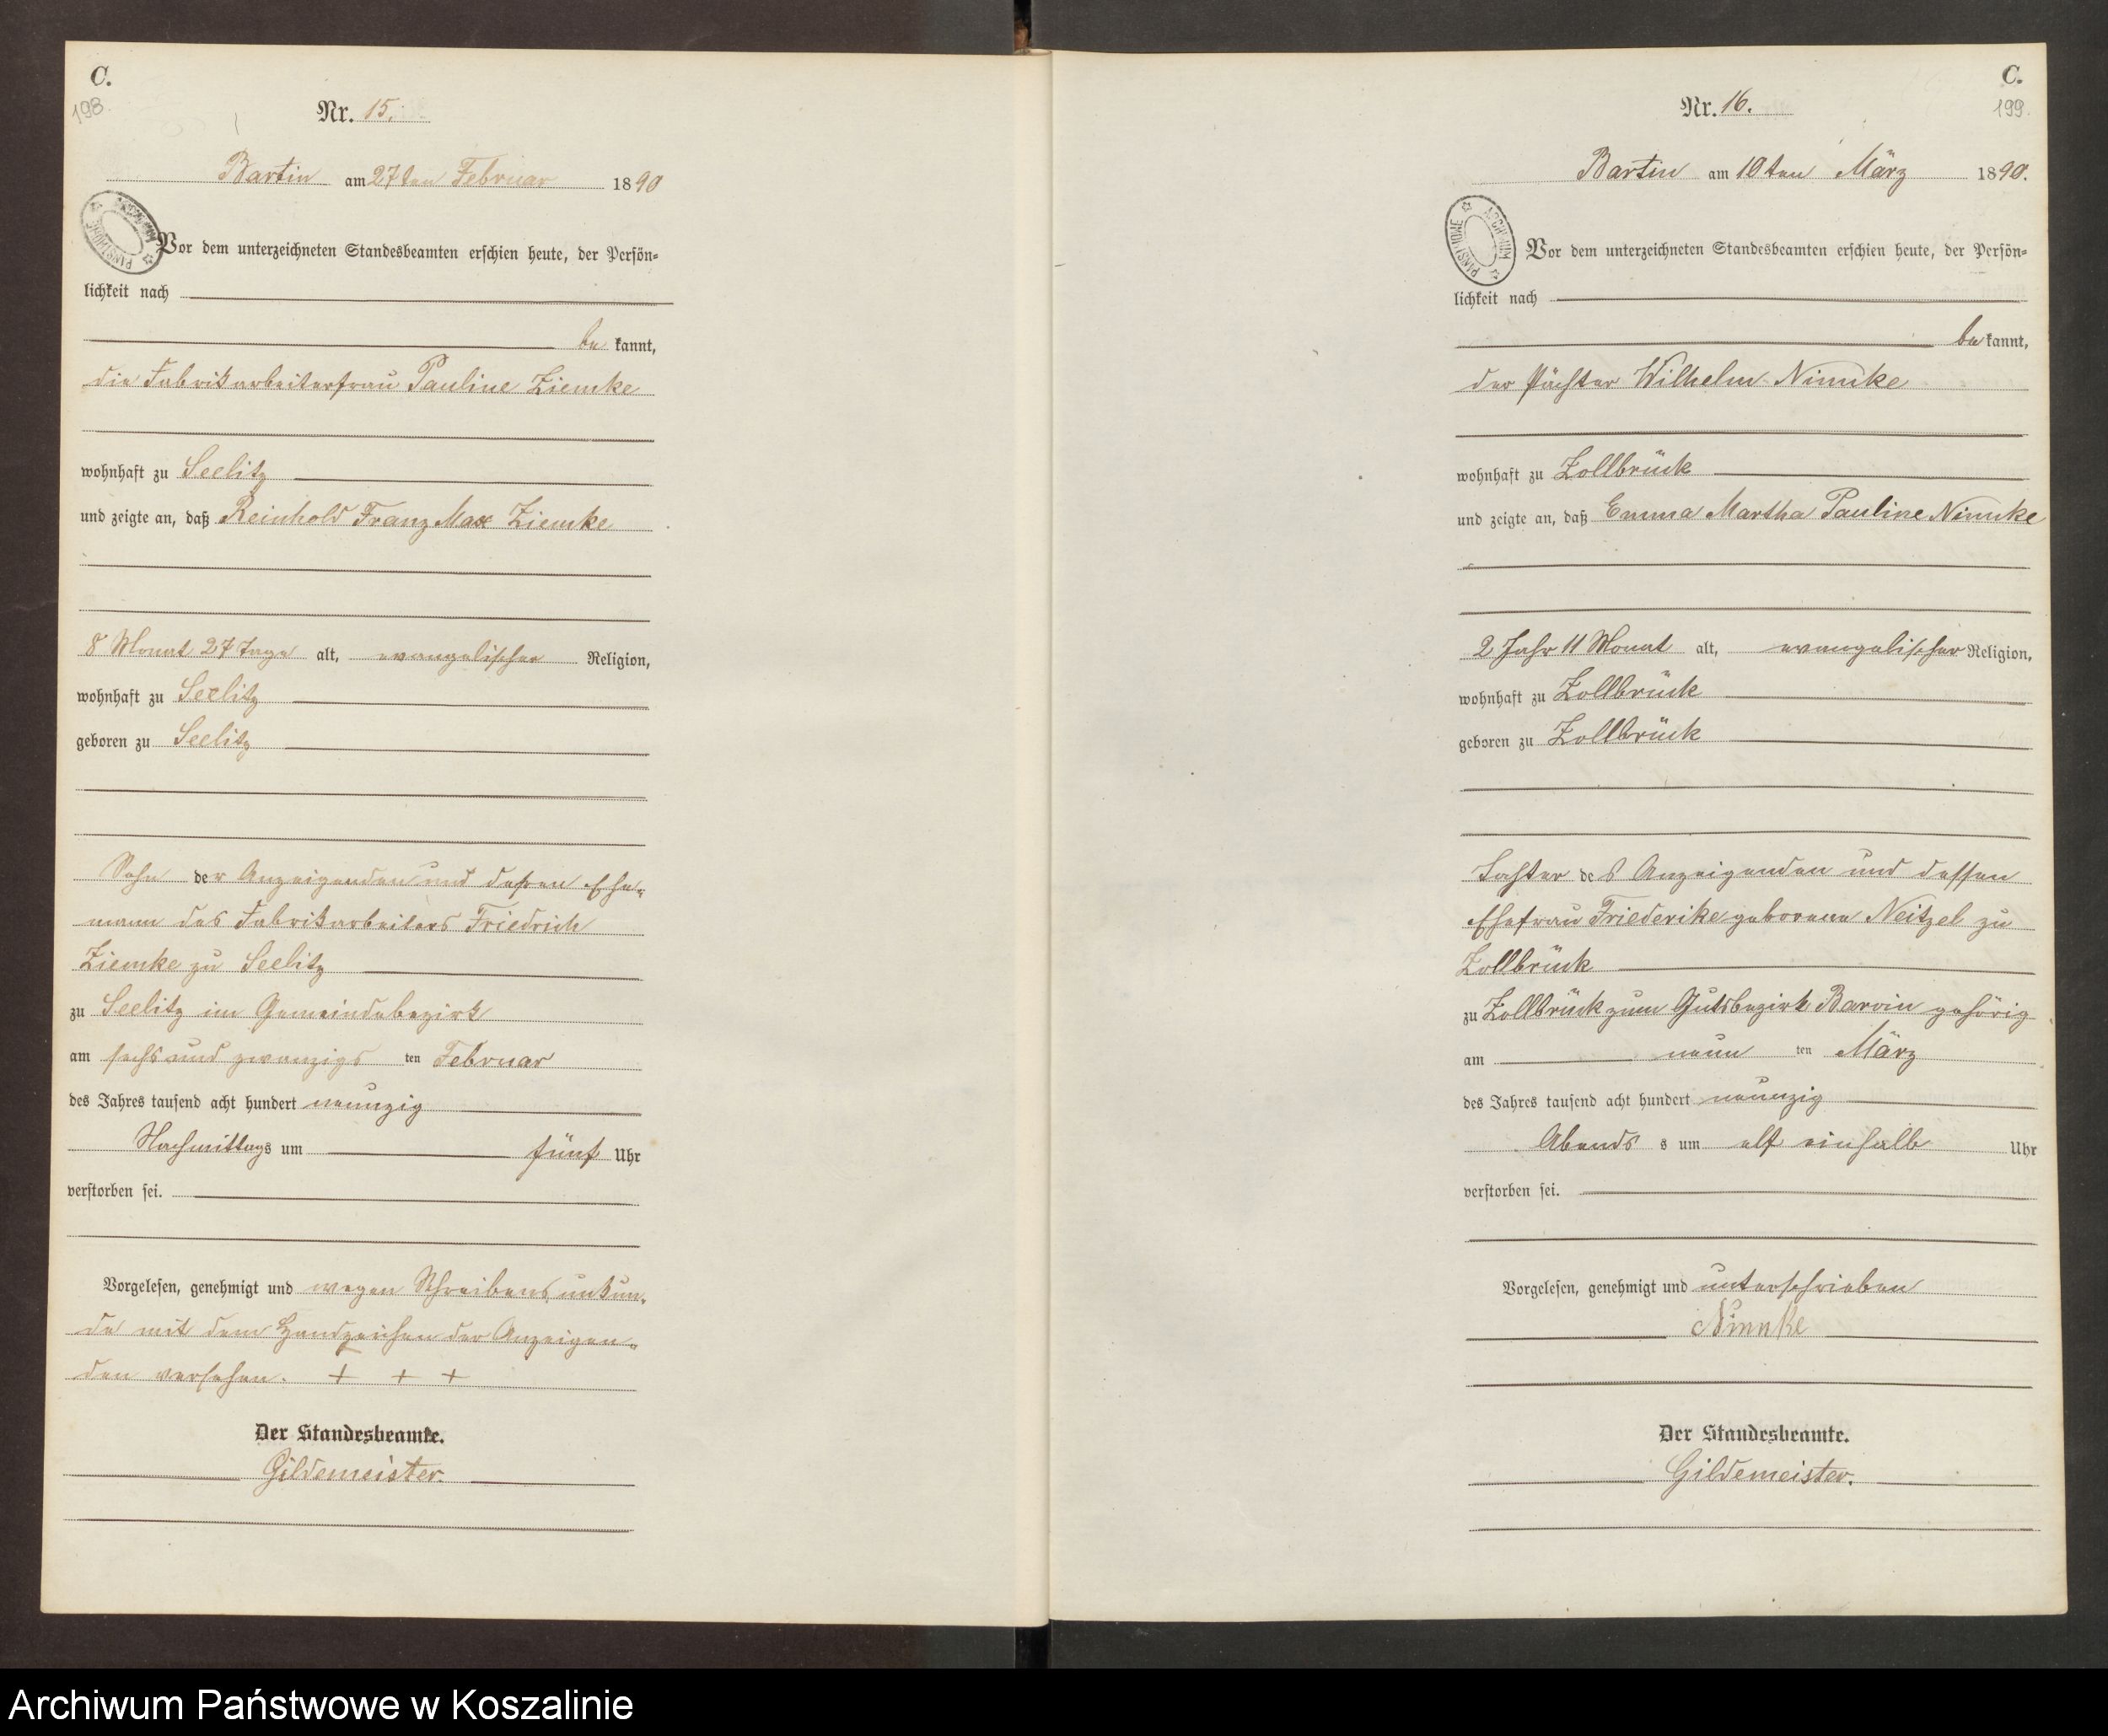 C.
198.
Nr. 15.
Bartin am 27ten Februar 1890
ARCHIWUM PAŃSTWOWE
Vor dem unterzeichneten Standesbeamten erschien heute, der Persön-
lichkeit nach
be kannt,
die Fabrikarbeiterfrau Pauline Ziemke
wohnhaft zu Seelitz
und zeigte an, daß Reinhold Franz Max Ziemke
8 Monat 27 Tage alt, evangelischer Religion,
wohnhaft zu Seelitz
geboren zu Seelitz
Sohn der Anzeigenden und dessen Ehe-
mann des Fabrikarbeiters Friedrich
Ziemke zu Seelitz
zu Seelitz im Gemeindebezirk
am sechs und zwanzigs ten Februar
des Jahres tausend acht hundert neunzig
Nachmittags um fünf Uhr
verstorben sei.
Vorgelesen, genehmigt und wegen Schreibens unkun-
de mit dem Handzeichen der Anzeigen-
den versehen. + + +
Der Standesbeamte.
Gildemeister.
C.
199.
Nr. 16.
Bartin am 10ten März 1890.
ARCHIWUM PAŃSTWOWE
Vor dem unterzeichneten Standesbeamten erschien heute, der Persön-
lichkeit nach
be kannt,
der Pächter Wilhelm Nimke
wohnhaft zu Zollbrück
und zeigte an, daß Emma Martha Pauline Nimke
2 Jahr 11 Monat alt, evangelischer Religion,
wohnhaft zu Zollbrück
geboren zu Zollbrück
Tochter des Anzeigenden und dessen
Ehefrau Friederike geborene Neitzel zu
Zollbrück
zu Zollbrück zum Gutsbezirk Barvin gehörig
am neun ten März
des Jahres tausend acht hundert neunzig
Abends s um elf einhalb Uhr
verstorben sei.
Vorgelesen, genehmigt und unterschrieben
Nimke
Der Standesbeamte.
Gildemeister.
Archiwum Państwowe w Koszalinie